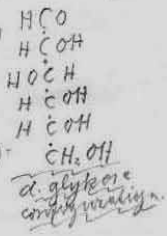 HCO
HCOH
HOCH
HCOH
HCOH
CH₂OH
d. glykose
configuration.